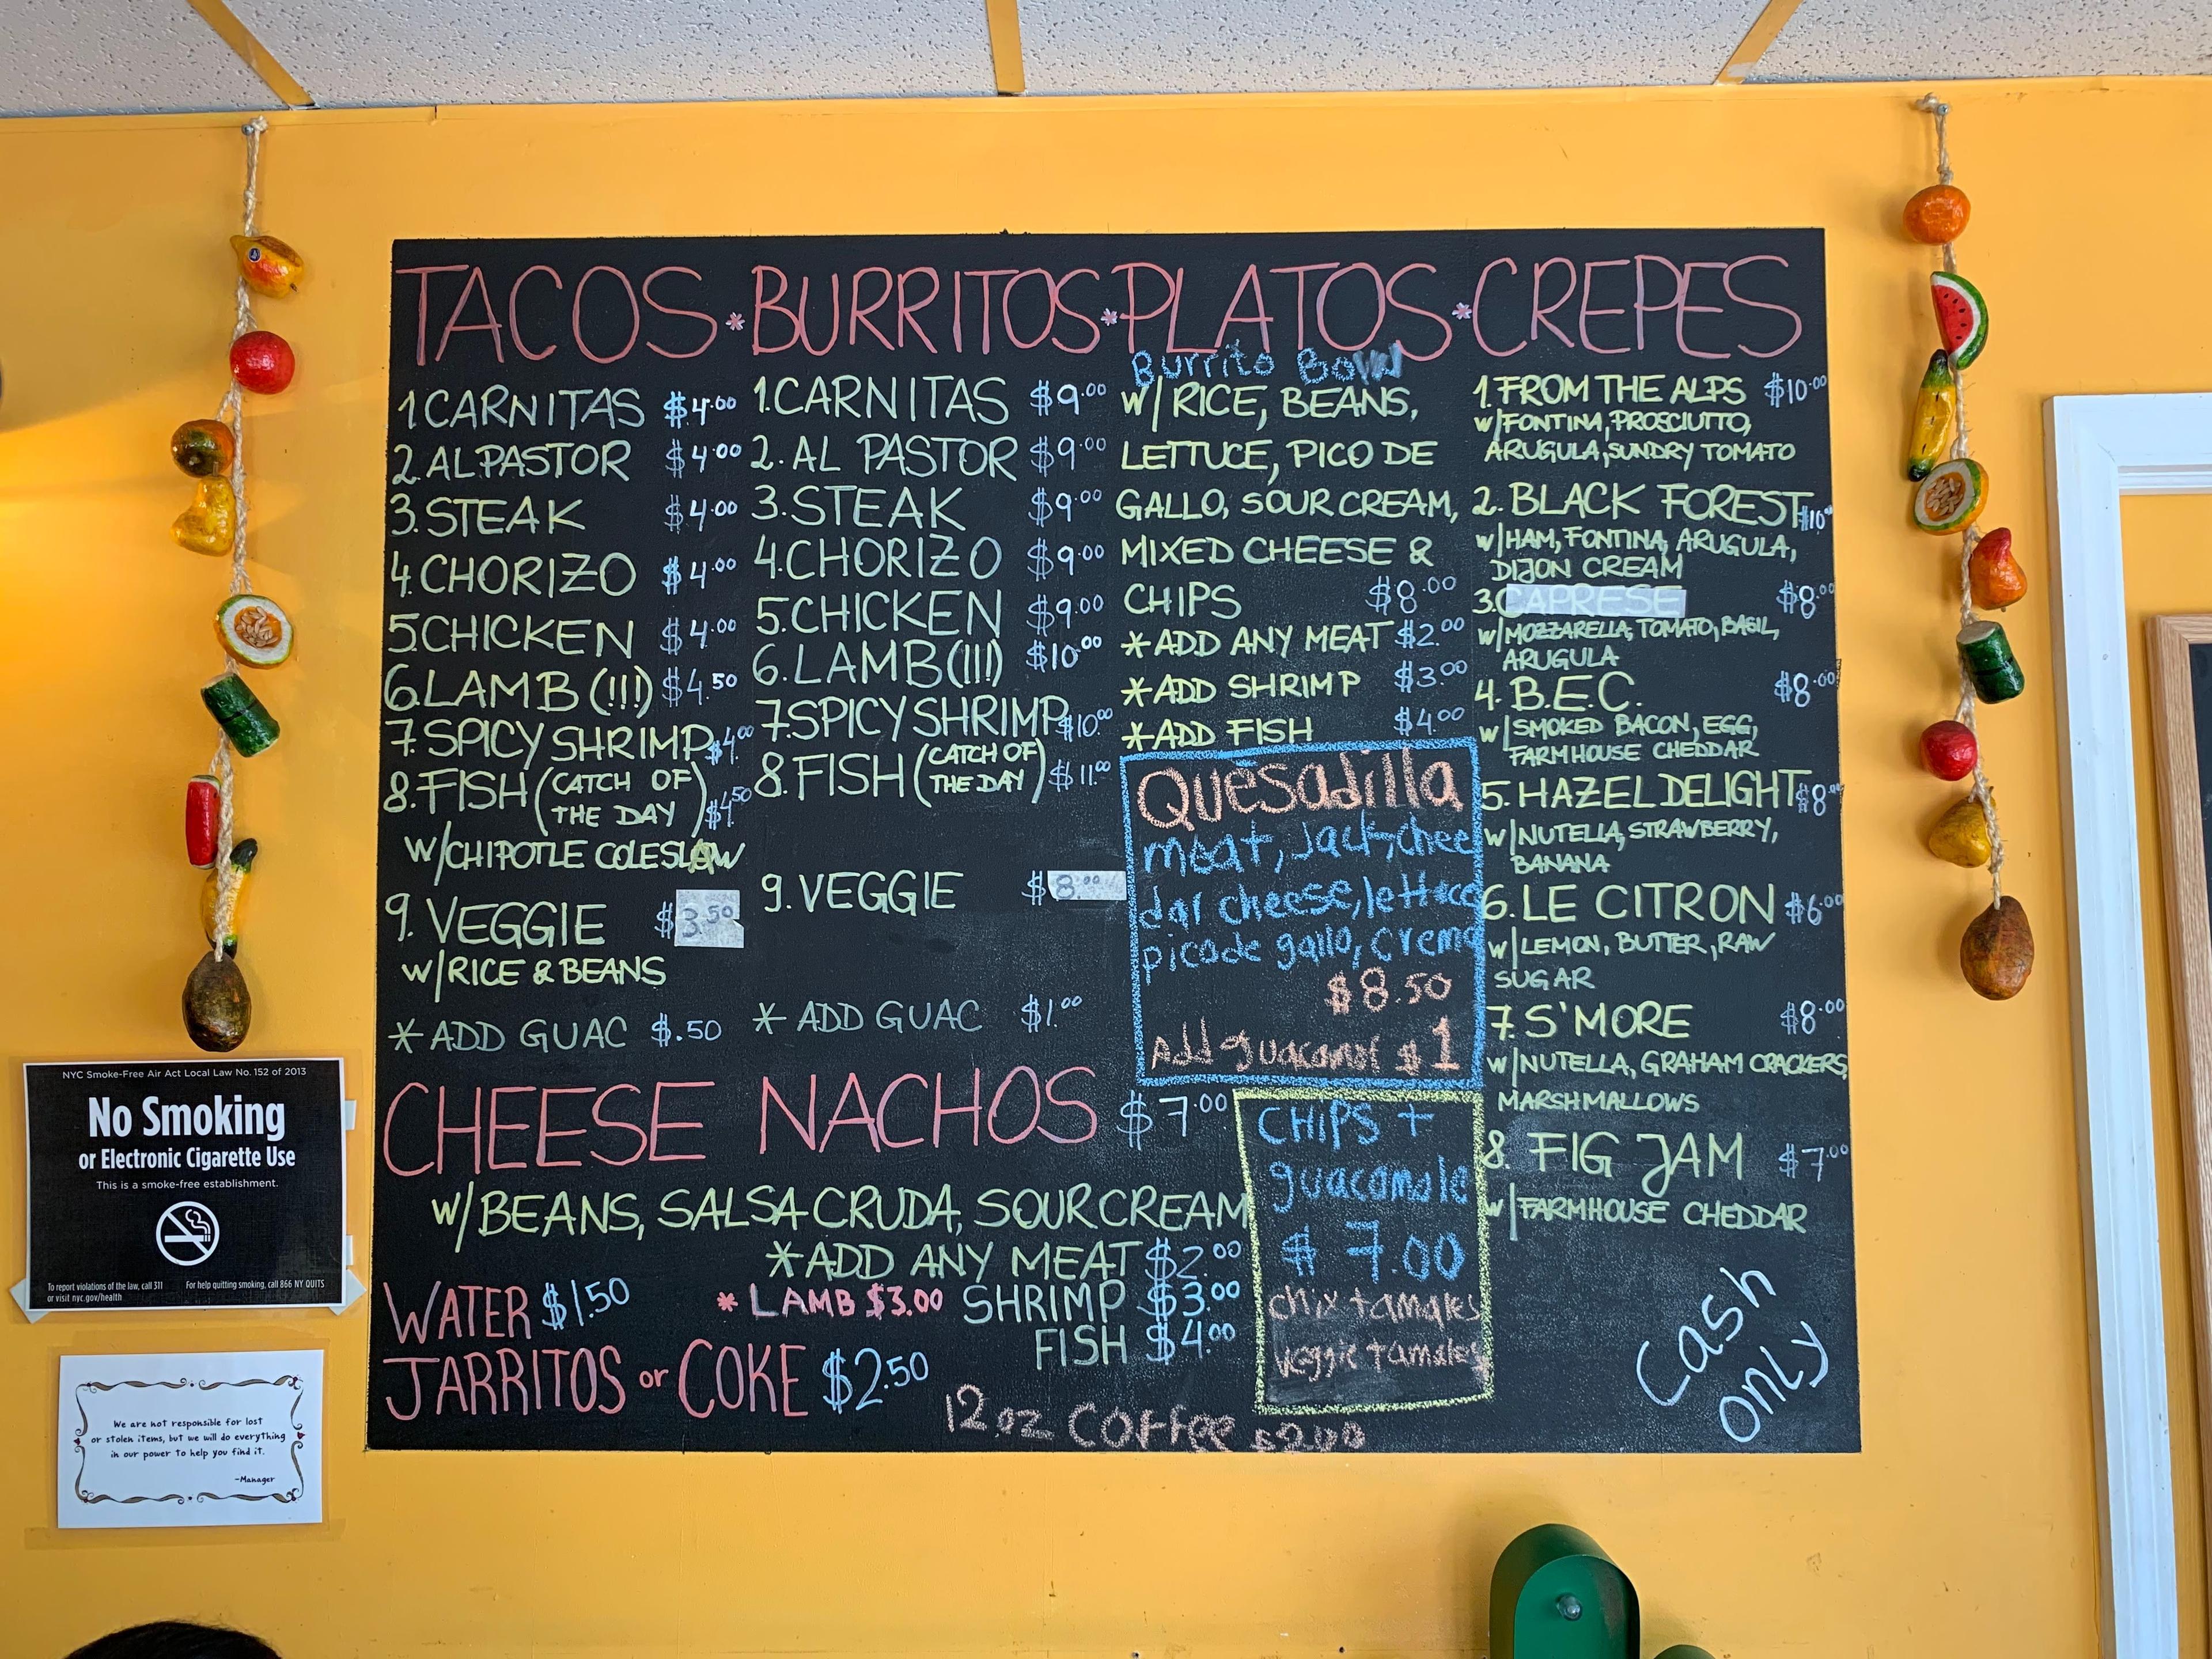 TACOS * BURRITOS * PLATOS * CREPES
1 CARNITAS $4.00
2. AL PASTOR $4.00
3. STEAK $4.00
4. CHORIZO $4.00
5. CHICKEN $4.00
6. LAMB (!!!) $4.50
7. SPICY SHRIMP $4.00
8. FISH (CATCH OF
THE DAY) $4.50
W/CHIPOTLE COLESLAW
9. VEGGIE $3.50
W/RICE & BEANS
* ADD GUAC $.50
1. CARNITAS $9.00
2. AL PASTOR $9.00
3. STEAK $9.00
4. CHORIZO $9.00
5. CHICKEN $9.00
6. LAMB (!!!) $10.00
7. SPICY SHRIMP $10.00
8. FISH (CATCH OF
THE DAY) $11.00
9. VEGGIE $8.00
* ADD GUAC $1.00
Burrito Bowl
W/ RICE, BEANS,
LETTUCE, PICO DE
GALLO, SOUR CREAM,
MIXED CHEESE &
CHIPS $8.00
* ADD ANY MEAT $2.00
* ADD SHRIMP $3.00
* ADD FISH $4.00
Quesadilla
meat, Jack, chee
dar cheese, lettuce
pico de gallo, Crema
$8.50
Add guacamol $1
1. FROM THE ALPS $10.00
W/FONTINA, PROSCIUTTO,
ARUGULA, SUNDRY TOMATO
2. BLACK FOREST $10.00
W/HAM, FONTINA, ARUGULA,
DIJON CREAM
3. CAPRESE $8.00
W/MOZZARELLA, TOMATO, BASIL,
ARUGULA
4. B.E.C. $8.00
W/SMOKED BACON, EGG,
FARMHOUSE CHEDDAR
5. HAZEL DELIGHT $8.00
W/NUTELLA, STRAWBERRY,
BANANA
6. LE CITRON $6.00
W/LEMON, BUTTER, RAW
SUGAR
7. S'MORE $8.00
W/NUTELLA, GRAHAM CRACKERS,
MARSHMALLOWS
8. FIG JAM $7.00
W/FARMHOUSE CHEDDAR
CHEESE NACHOS $7.00
W/BEANS, SALSA CRUDA, SOUR CREAM
* ADD ANY MEAT $2.00
* LAMB $3.00 SHRIMP $3.00
FISH $4.00
WATER $1.50
JARRITOS or COKE $2.50
12 oz Coffee $2.00
CHIPS +
guacamole
$7.00
chix tamales
veggie tamales
Cash
only
NYC Smoke-Free Air Act Local Law No. 152 of 2013
No Smoking
or Electronic Cigarette Use
This is a smoke-free establishment.
To report violations of the law, call 311
or visit nyc.gov/health
For help quitting smoking, call 866 NY QUITS
We are not responsible for lost
or stolen items, but we will do everything
in our power to help you find it.
-Manager